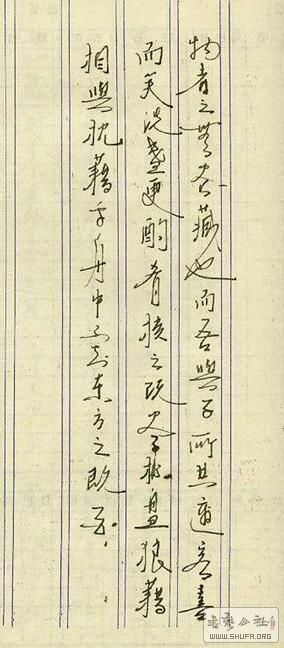 物者之無尽藏也而吾與子所共適客喜
而笑洗盞更酌肴核之既尽杯盤狼藉
相與枕藉乎舟中不知东方之既白.
公社
WWW.SHUFA.ORG